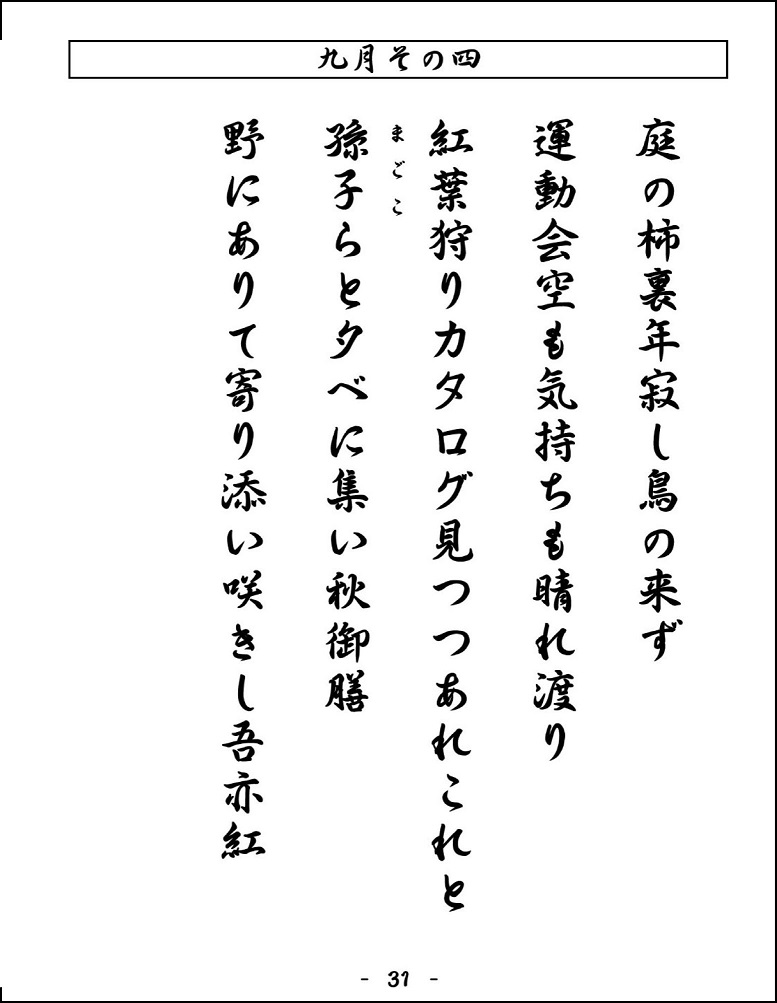 九月その四
庭の柿裏年寂し鳥の来ず
運動会空も気持ちも晴れ渡り
紅葉狩りカタログ見つつあれこれと
まごこ
孫子らと夕べに集い秋御膳
野にありて寄り添い咲きし吾亦紅
- 31 -